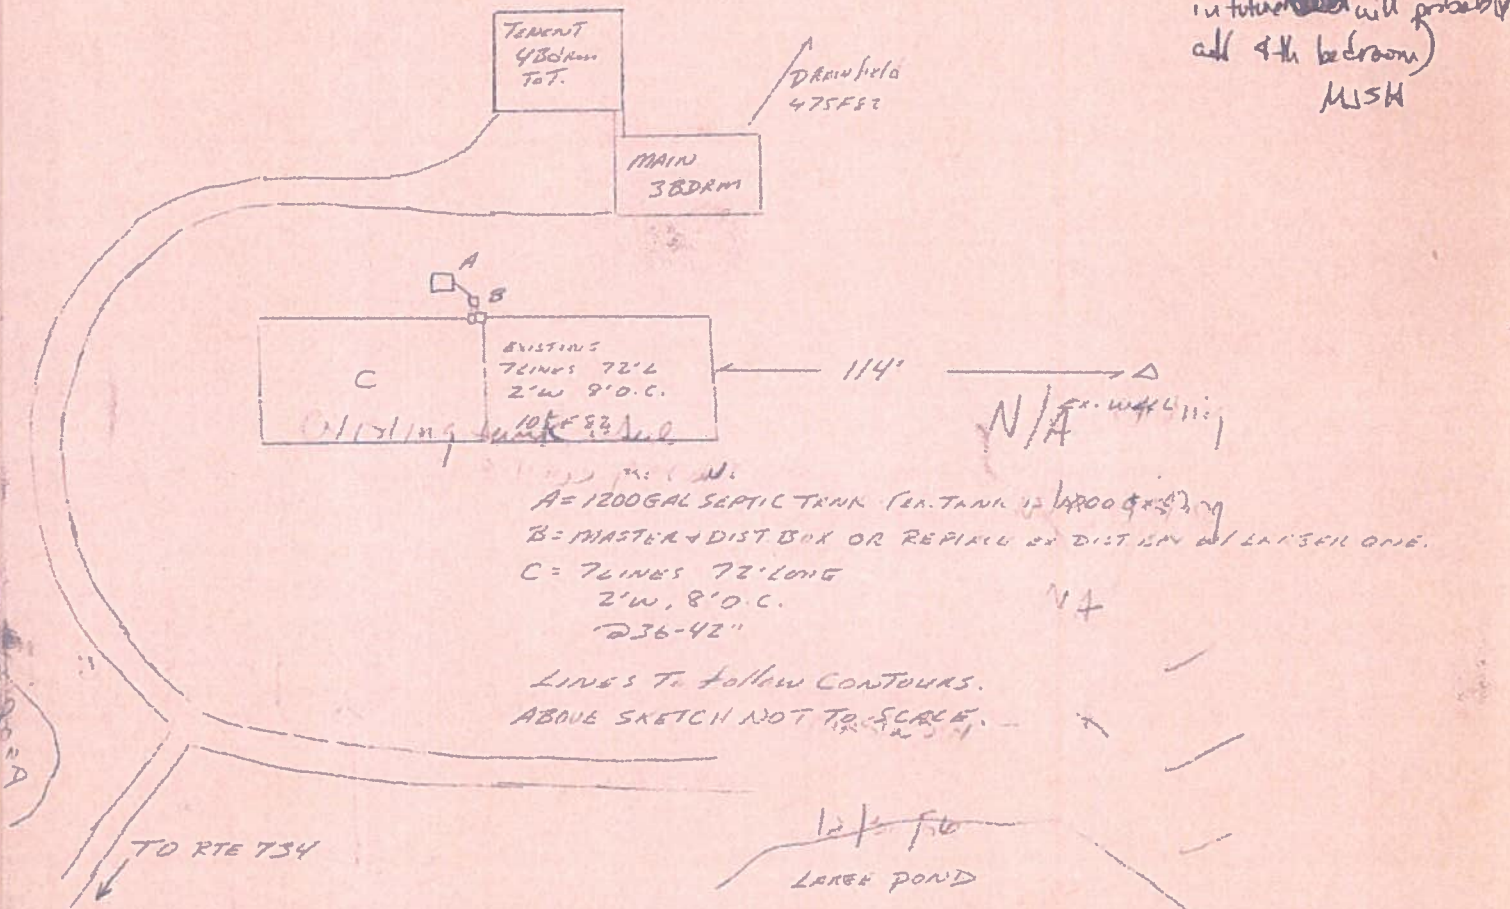 in future will probably
add 4th bedroom)
MJSH
TENENT
4BDRM
TOT.
DRAINFIELD
475F82
MAIN
3BDRM
A
B
EXISTING
7LINES 72'L
2'W 8'O.C.
C
114'
N/A
A = 1200 GAL SEPTIC TANK (EX. TANK
B = MASTER & DIST BOX OR REPLACE EX DIST BOX W/ LARGER ONE.
C = 7LINES 72' LONG
2'W, 8'O.C.
@36-42"
NA
LINES To follow CONTOURS.
ABOVE SKETCH NOT TO SCALE.
TO RTE 734
LARGE POND